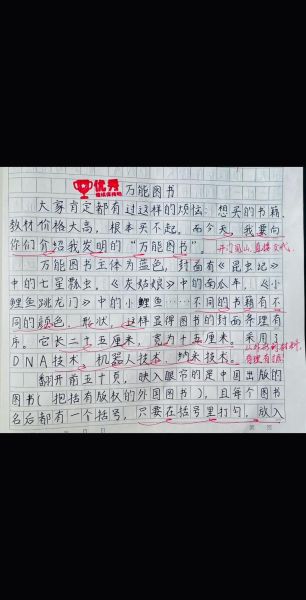 优秀
万能图书
大家肯定都有过这样的烦恼:想买的书籍、
教材价格太高,根本买不起。而今天,我要向
你们介绍我发明的“万能图书”。
开门见山,直接交代。
万能图书主体为蓝色,封面有《昆虫记》
中的七星瓢虫,《灰姑娘》中的南瓜车,《小
鲤鱼跳龙门》中的小鲤鱼……不同的书籍有不
同的颜色、形状,这样显得图书的封面条理有
序。它长二十五厘米,宽为十五厘米。采用了
DNA技术、机器人技术、纳米技术。
翻开前五十页,映入眼帘的是中国出版的
图书(把括有版权的外国图书),且每个图书
名后都有一个括号,只要在括号里打勾,放入